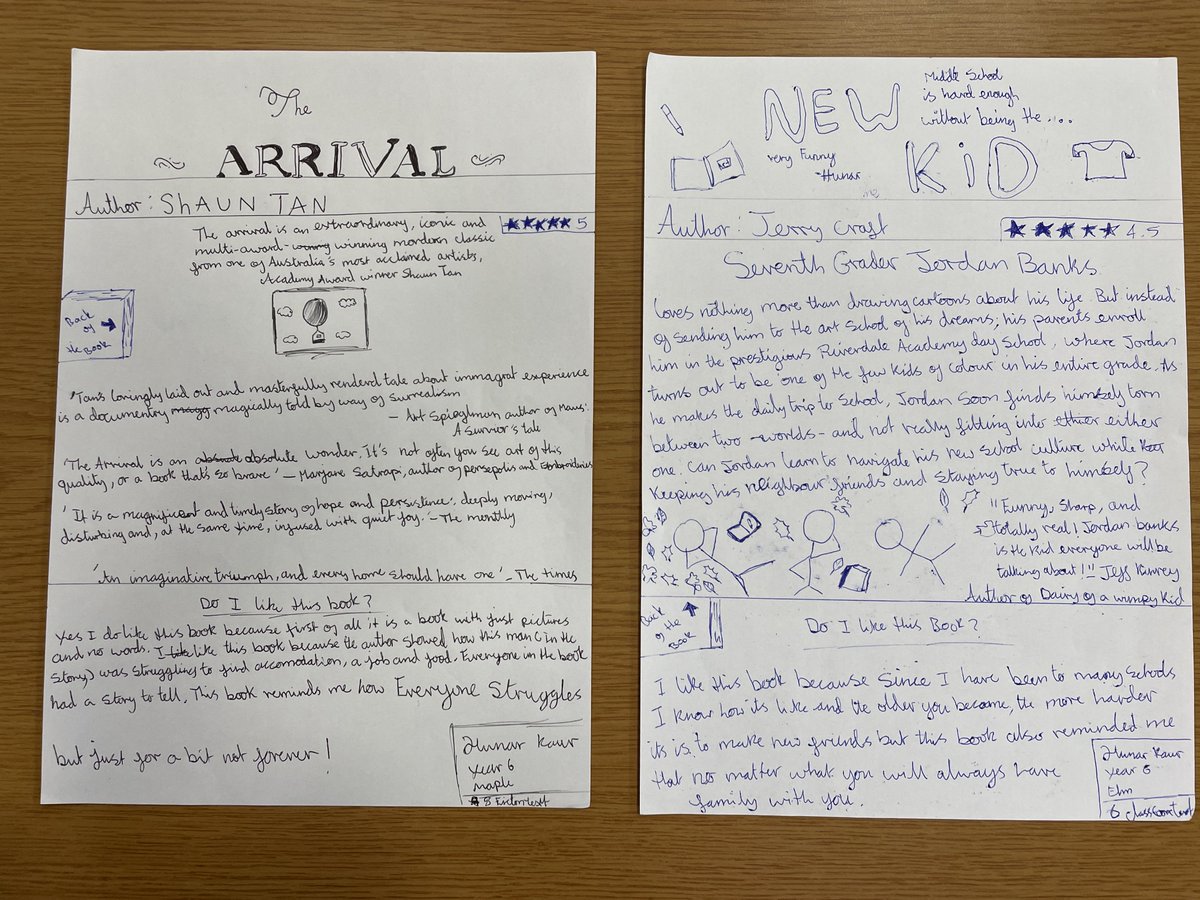 The
ARRIVAL
Author: SHAUN TAN
5
The arrival is an extraordinary, iconic and
multi-award- winning mordern classic
from one of Australia's most acclaimed artists,
Academy Award winner Shaun Tan
Back
of
the Book
'Tans loringly laid out and masterfully renderd tale about immagrat experience
is a documentry magically told by way of Surrealism
- Art Spieglman author of Maus:
A Survior's tale
'The Arrival is an absolute wonder. It's not often you see art of this
quality, or a book that's so brave' - Marjane Satrapi, author of persepolis and Embroideries
'It is a magnificent and timely story of hope and persistence, deeply moving,
disturbing and, at the same time, infused with quiet joy. - The monthly
'An imaginative triumph, and every home should have one' - The times
Do I like this book?
Yes I do like this book because first of all it is a book with just pictures
and no words. I like this book because the author showed how this man (in the
story) was struggling to find accomodation, a job and food. Everyone in the book
had a story to tell. This book reminds me how Everyone Struggles
but just for a bit not forever!
Hunar Kaur
Year 6
maple
NEW
KiD
Middle School
is hard enough
without being the....
very Funny
-Hunar
Author: Jerry Craft
4.5
Seventh Grader Jordan Banks
loves nothing more than drawing cartoons about his life. But instead
of sending him to the art School of his dreams; his parents enroll
him in the prestigious Riverdale Academy day School, where Jordan
turns out to be one of the few kids of colour in his entire grade. As
he makes the daily trip to School, Jordan Soon finds himself torn
between two -worlds- and not really fitting into either
one. Can Jordan learn to navigate his new School culture while
Keeping his neighbour friends and Staying true to himself?
"Funny, Sharp, and
totally real! Jordan banks
is the kid everyone will be
talking about!" Jeff Kinney
Author of Dairy of a wimpy Kid
Back
of the
Book
Do I like this Book?
I like this book because Since I have been to many Schools
I know how its like and the older you become, the more harder
its is to make new friends but this book also reminded me
that no matter what you will always have
family with you.
Hunar Kaur
Year 6
Elm